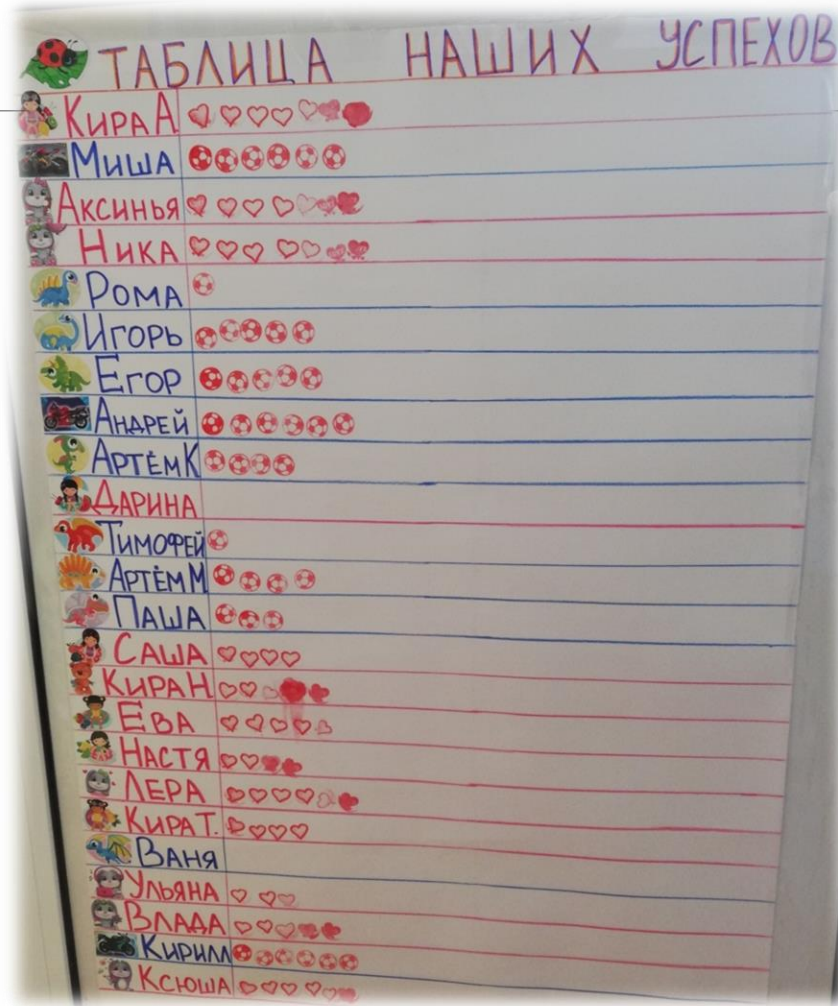 ТАБЛИЦА НАШИХ УСПЕХОВ
КИРА А
МИША
АКСИНЬЯ
НИКА
РОМА
ИГОРЬ
ЕГОР
АНДРЕЙ
АРТЁМ К
ДАРИНА
ТИМОФЕЙ
АРТЁМ М
ПАША
САША
КИРА Н
ЕВА
НАСТЯ
ЛЕРА
КИРА Т.
ВАНЯ
УЛЬЯНА
ВЛАДА
КИРИЛЛ
КСЮША